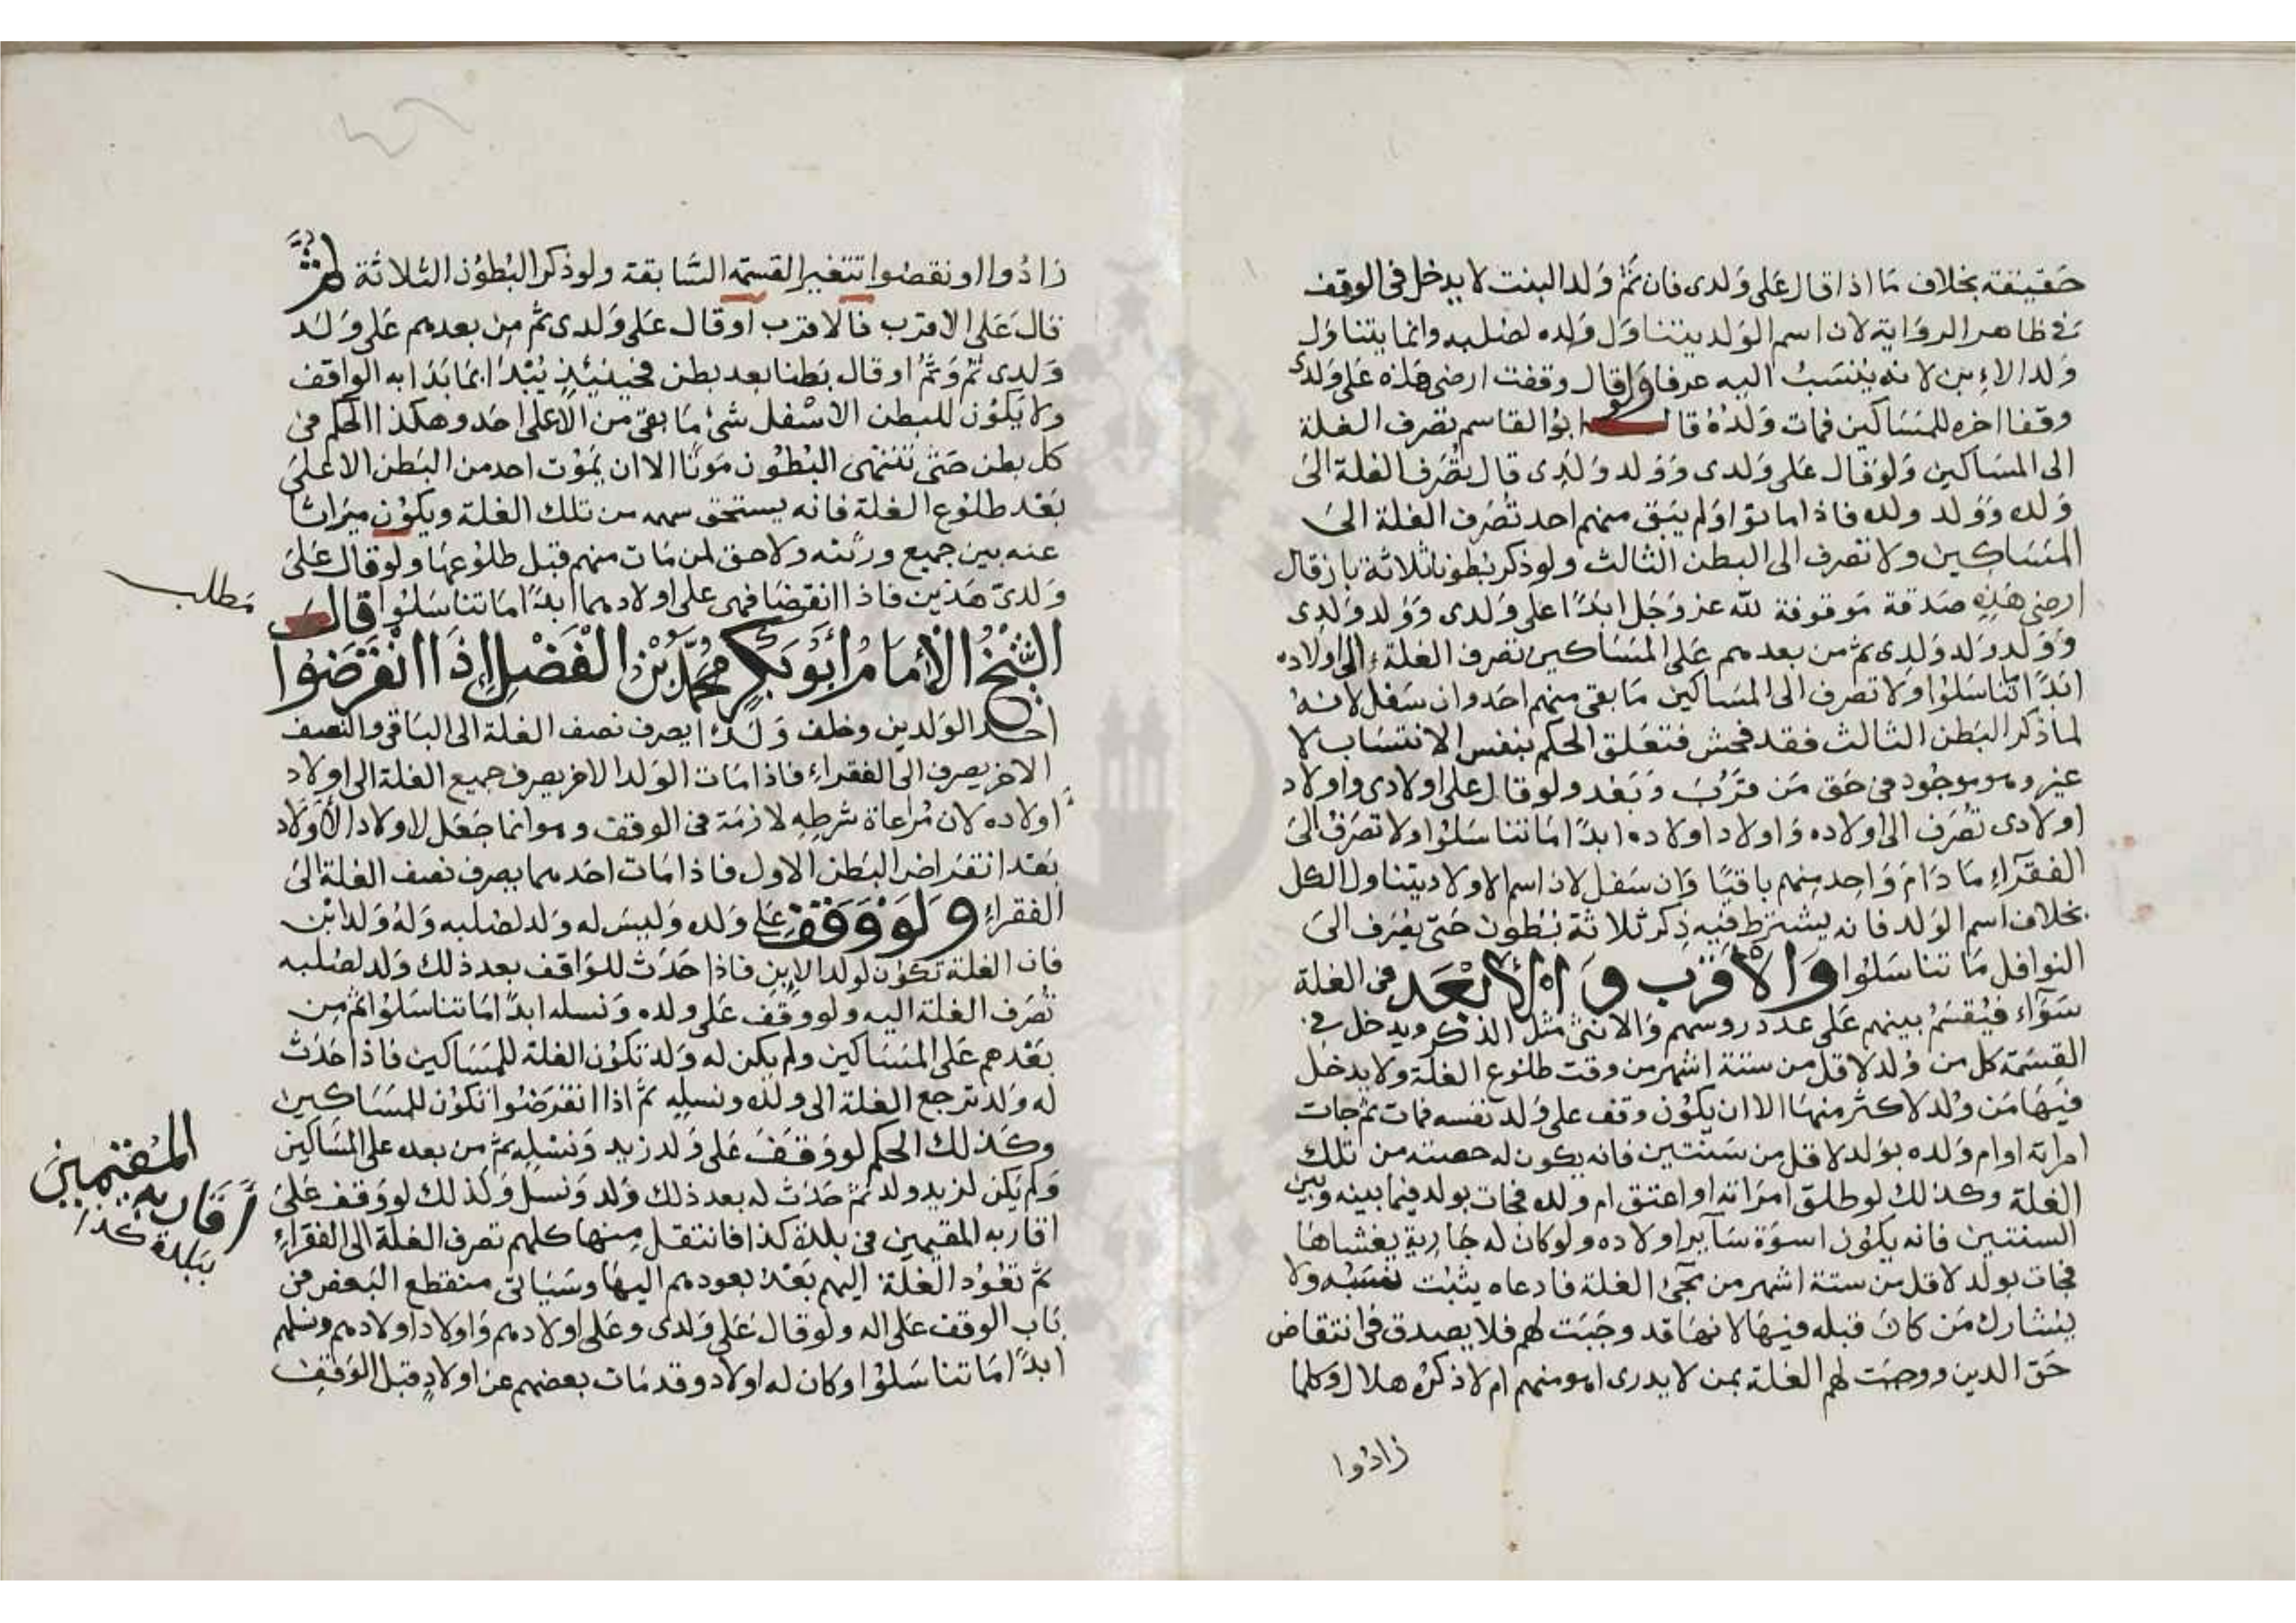 حقيقة بخلاف ما اذا قال على ولدى فان ثم ولد البنت لا يدخل فى الوقف
فى ظاهر الرواية لان اسم الولد يتناول ولده لصلبه وانما يتناول
ولد الابن لانه ينسب اليه عرفا ولو قال وقفت ارضى هذه على ولدى
وقفا اخره للمساكين فمات ولده قال ابو القاسم تصرف الغلة
الى المساكين ولو قال على ولدى وولد ولدى قال يصرف الغلة الى
ولده وولد ولده فاذا ماتوا ولم يبق منهم احد تصرف الغلة الى
المساكين ولا تصرف الى البطن الثالث ولو ذكر بطونا ثلاثة بان قال
ارضى هذه صدقة موقوفة لله عز وجل ابدا على ولدى وولد ولدى
وولد ولد ولدى ثم من بعدهم على المساكين تصرف الغلة الى اولاده
ابدا ما تناسلوا ولا تصرف الى المساكين ما بقى منهم احد وان سفل لانه
لما ذكر البطن الثالث فقد فحش فتعلق الحكم بنفس الانتساب لا
غير وهو موجود فى حق من قرب وبعد ولو قال على اولادى واولاد
اولادى تصرف الى اولاده واولاد اولاده ابدا ما تناسلوا ولا تصرف الى
الفقراء ما دام واحد منهم باقيا وان سفل لان اسم الاولاد يتناول الكل
بخلاف اسم الولد فانه يشترط فيه ذكر ثلاثة بطون حتى يصرف الى
النوافل ما تناسلوا والاقرب والابعد فى الغلة
سواء فيقسم بينهم على عدد روسهم والانثى مثل الذكر ويدخل فى
القسمة كل من ولد لاقل من ستة اشهر من وقت طلوع الغلة ولا يدخل
فيها من ولد لاكثر منها الا ان يكون وقف على ولد نفسه فمات ثم جات
امراته او ام ولده بولد لاقل من سنتين فانه يكون له حصته من تلك
الغلة وكذلك لو طلق امراته او اعتق ام ولده فجات بولد فيما بينه وبين
السنتين فانه يكون اسوة ساير اولاده ولو كان له جارية يغشاها
فجات بولد لاقل من ستة اشهر من مجئ الغلة فادعاه يثبت نسبه ولا
يشارك من كان قبله فيها لانها قد وجبت لهم فلا يصدق فى انتقاض
حق الذين ووجبت لهم الغلة بمن لا يدرى اهو منهم ام لا ذكره هلال وكلما
زادوا
زادوا او نقصوا تتغير القسمة السابقة ولو ذكر البطون الثلاثة ثم
قال على الاقرب فالاقرب او قال على ولدى ثم من بعدهم على ولد
ولدى ثم وثم او قال بطنا بعد بطن فحينئذ يبدا بما بدا به الواقف
ولا يكون للبطن الاسفل شئ ما بقى من الاعلى احد وهكذا الحكم فى
كل بطن حتى تنتهى البطون موتا الا ان يموت احد من البطن الاعلى
بعد طلوع الغلة فانه يستحق سهمه من تلك الغلة ويكون ميراثا
عنه بين جميع ورثته ولا حق لمن مات منهم قبل طلوعها ولو قال على
ولدىّ هذين فاذا انقرضا فهى على اولادهما ابدا ما تناسلوا قال
مطلب
الشيخ الامام ابو بكر محمد بن الفضل اذا انقرضوا
احد الولدين وخلف ولدا يصرف نصف الغلة الى الباقى والنصف
الاخر يصرف الى الفقراء فاذا مات الولد الاخر يصرف جميع الغلة الى اولاد
اولاده لان مراعاة شرطه لازمة فى الوقف وهو انما جعل لاولاد الاولاد
بعد انقراض البطن الاول فاذا مات احدهما يصرف نصف الغلة الى
الفقراء ولو وقف على ولده وليس له ولد لصلبه وله ولد ابن
فان الغلة تكون لولد الابن فاذا حدث للواقف بعد ذلك ولد لصلبه
تصرف الغلة اليه ولو وقف على ولده ونسله ابدا ما تناسلوا ثم من
بعدهم على المساكين ولم يكن له ولد تكون الغلة للمساكين فاذا حدث
له ولد ترجع الغلة الى ولده ونسله ثم اذا انقرضوا تكون للمساكين
وكذلك الحكم لو وقف على ولد زيد ونسله ثم من بعده على المساكين
ولم يكن لزيد ولد ثم حدث له بعد ذلك ولد ونسل وكذلك لو وقف على
اقاربه المقيمين فى بلدة كذا فانتقل منها كلهم تصرف الغلة الى الفقراء
ثم تعود الغلة اليهم بعد بعودهم اليها وسياتى منقطع البعض فى
باب الوقف على اله ولو قال على ولدى وعلى اولادهم واولاد اولادهم ونسلهم
ابدا ما تناسلوا وكان له اولاد وقد مات بعضهم عن اولاد قبل الوقف
المقيمين
اقاربه
ببلدة كذا